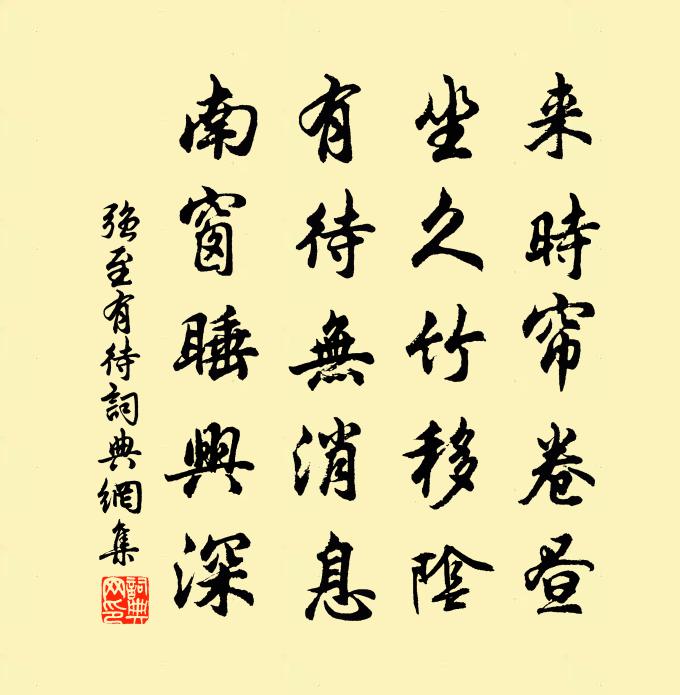 来時帘卷昼
坐久竹移陰
有待無消息
南窗睡興深
強至有待詞典網集
詞典網印